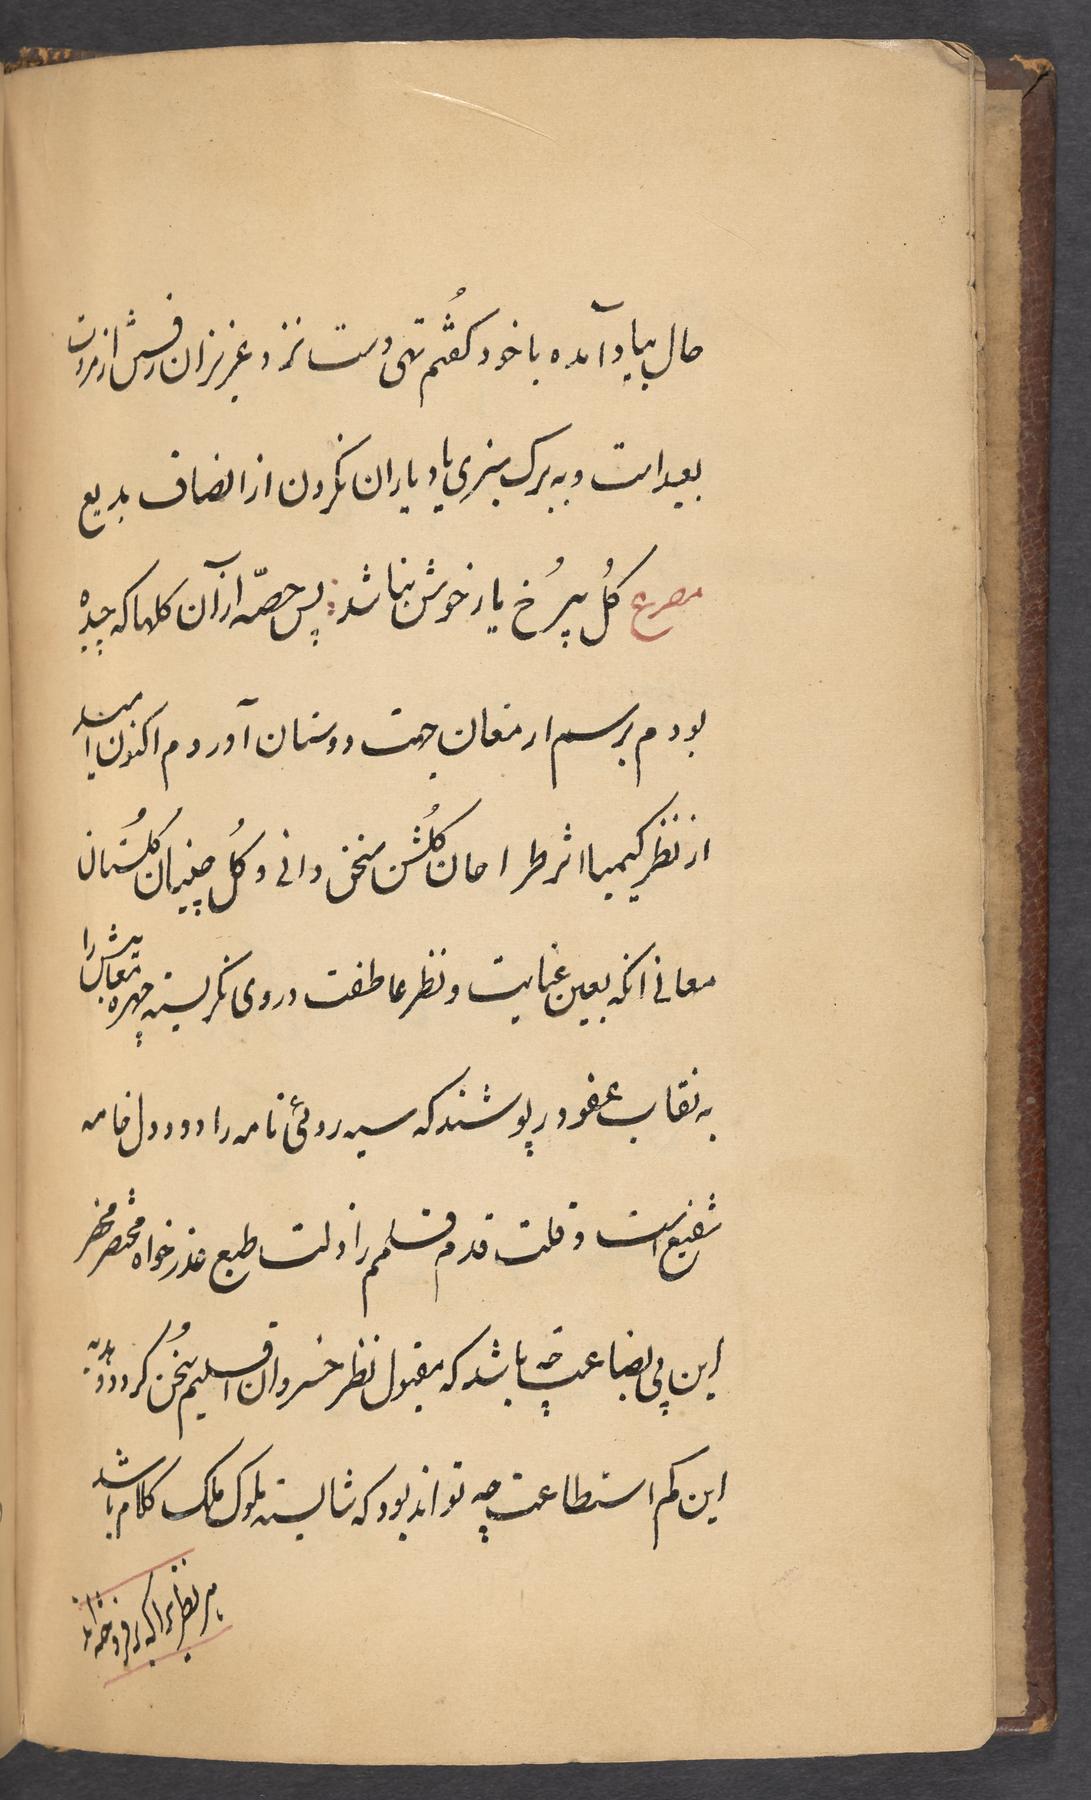 حال بیاد آمده با خود گفتم تهی دست نزد عزیزان رفتن از مروت
بعید است و به برک سبزی یاد یاران نکردن از انصاف بدیع
مصرع کُل بیرُخ یار خوش نباشد پس حصّه از آن کلها که چیده
بودم برسم ارمغان جهت دوستان آوردم اکنون امید
از نظر کیمیا اثر طراحان کُلشن سخن دانی و کُل چینیان کلُستان
معانی انکه بعین عنایت و نظر عاطفت در وی نکریسته چهره معایبش را
به نقاب عفو در پوشند که سیه روئی نامه را دود دل خامه
شفیع است و قلت قدم قلمم را ذلت طبع عذر خواه مختصر
این بی بضاعت چه باشد که مقبول نظر خسروان اقلیم سُخن کردد و هدیه
این کم استطاعت چه تواند بود که شایسته ملوک ملک کلام باشد